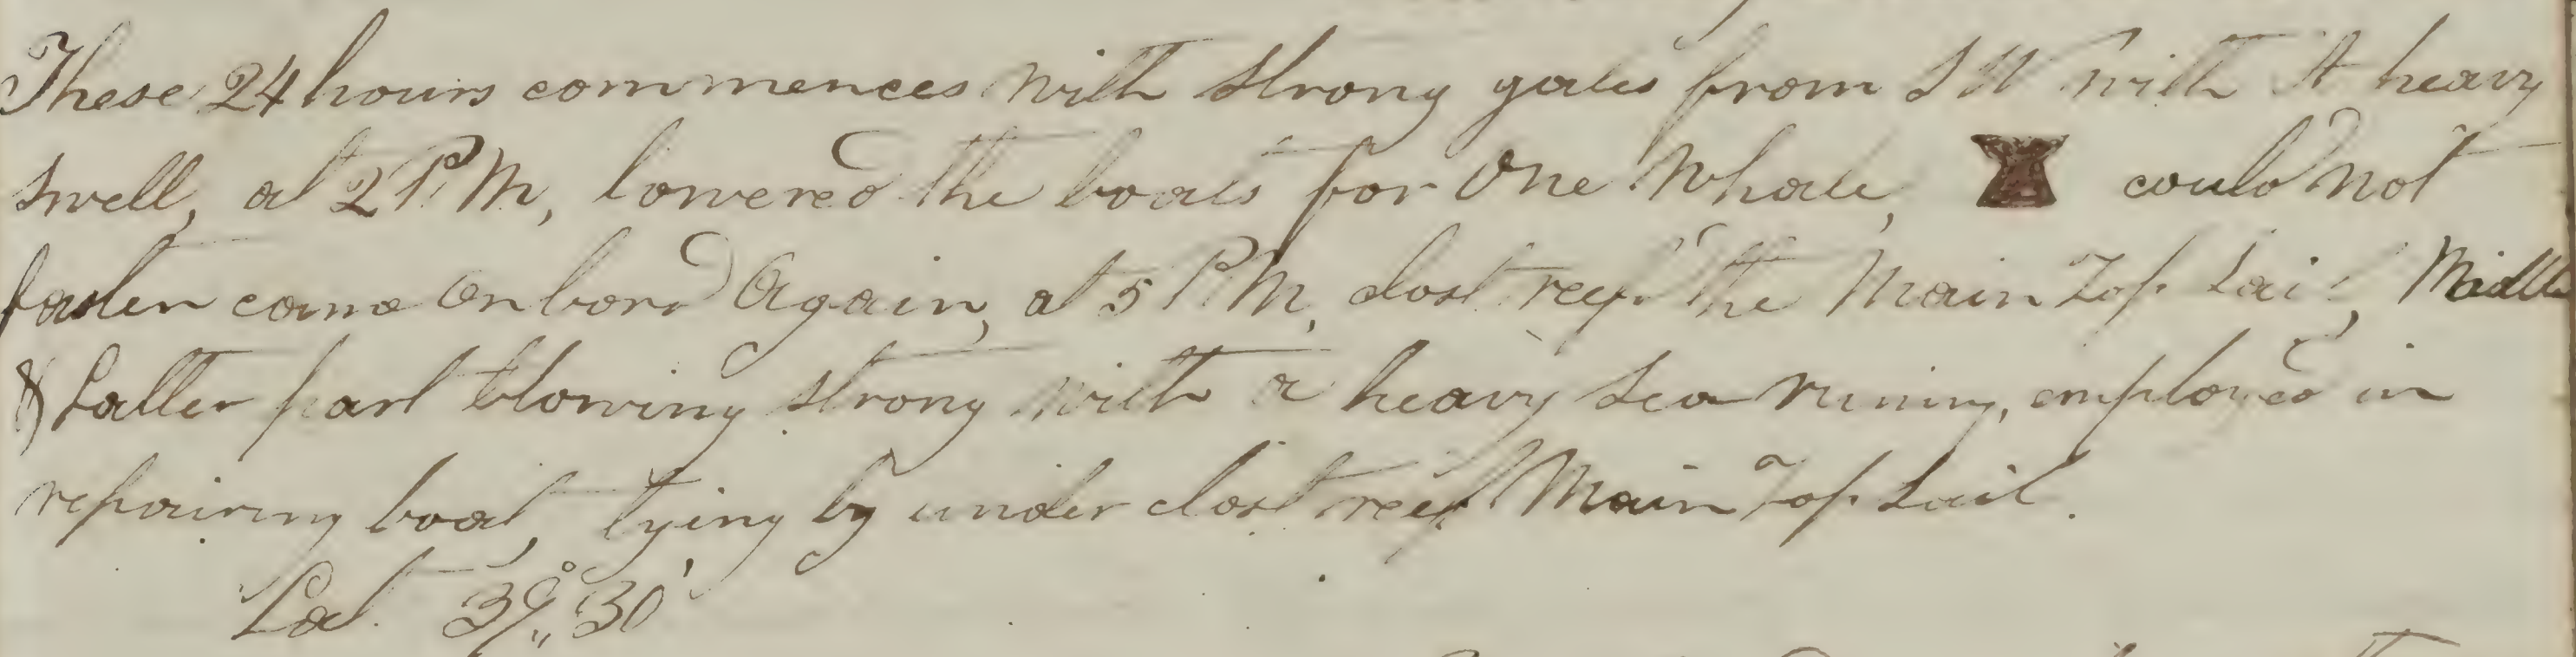 These 24 hours commences with strong gales from SW with A heavy
swell, at 2 PM, lowered the boats for One Whale, could not
fasten came on bord Again, at 5 PM, clost reef the Main Top Sail, Middle
& Latter part blowing strong with a heavy Sea runing, employed in
repairing boat, lying by under clost reef Main Top Sail.
Lat. 39°,,30'